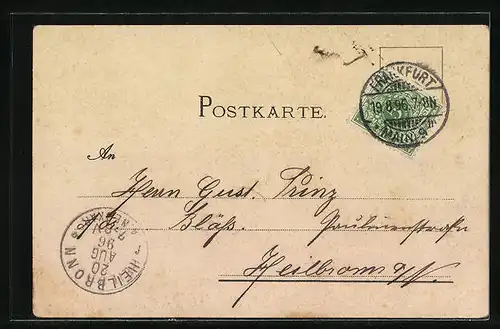 POSTKARTE.
FRANKFURT
19.8.96. 7-8N
(MAIN) 9
An
Herrn Gust. Prinz
Paulinenstraße
Heilbronn a/N.
HEILBRONN
20
AUG
96